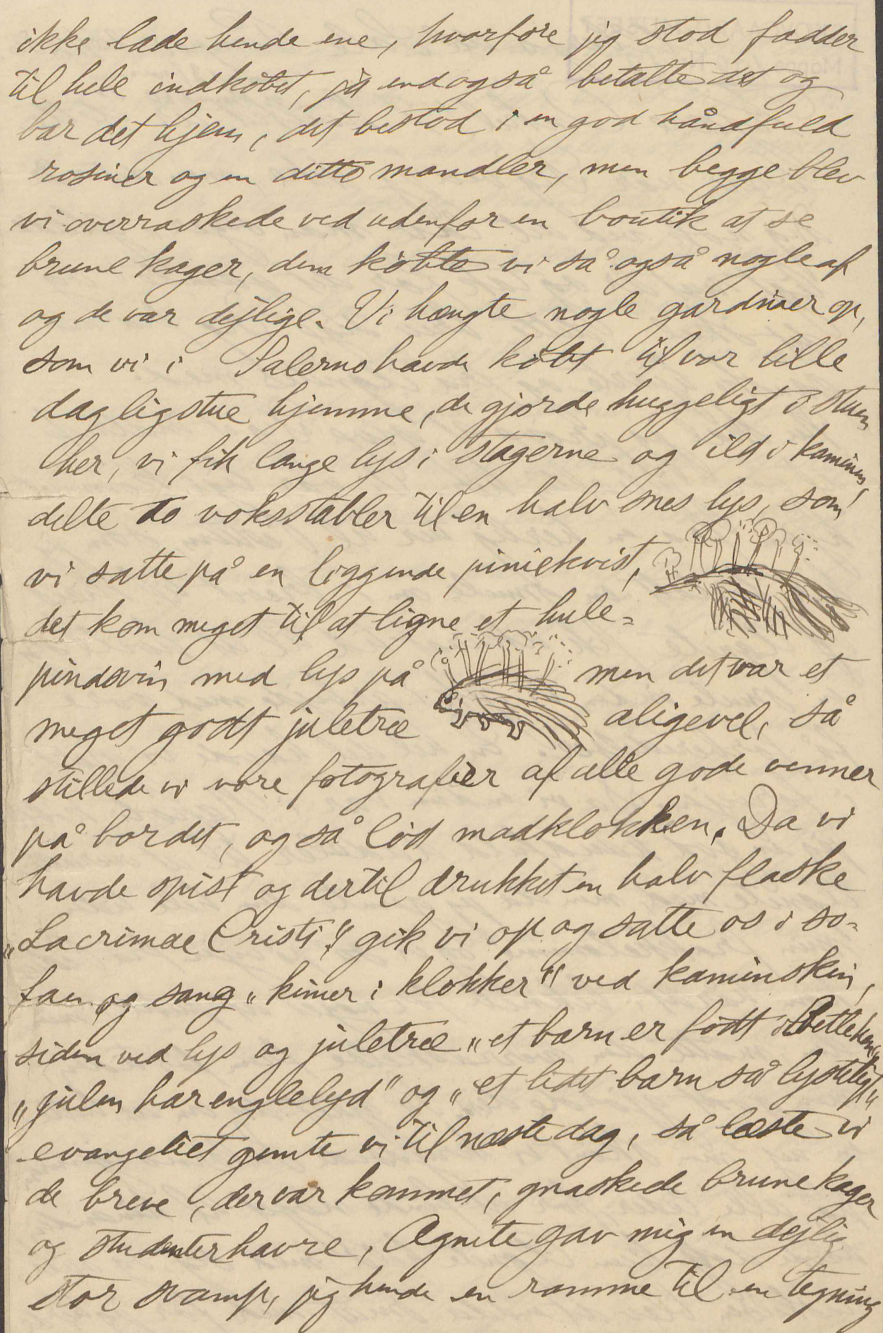 ikke lade hende ene, hvorfore jeg stod fadder
til hele indkøbet, ja endogså betalte det og
bar det hjem, det bestod i en god håndfuld
rosiner og en ditto mandler, men begge blev
vi overraskede ved udenfor en boutik at se
brune kager, dem købte vi så også nogle af
og de var dejlige. Vi hængte nogle gardiner op,
som vi i Salerno havde købt til vor lille
dagligstue hjemme, de gjorde huggeligt i stuen
her, vi fik lange lys i stagerne og ild i kaminen,
delte to voksstabler til en halv snes lys, som
vi satte på en liggende piniekvist,
det kom meget til at ligne et hule-
pindsvin med lys på men det var et
meget godt juletræ aligevel, så
stillede vi vore fotografier af alle gode venner
på bordet, og så lød madklokken. Da vi
havde spist og dertil drukket en halv flaske
"Lacrimae Cristi" gik vi op og satte os i so-
faen og sang "kimer i klokker" ved kaminskin,
siden ved lys og juletræ "et barn er født i Betlehem"
"julen har englelyd" og "et lidet barn så lysteligt"
evangeliet gemte vi til næste dag, så læste vi
de breve, der var kommet, gnaskede brune kager
og studenterhavre, Agnete gav mig en dejlig
stor svamp, jeg hende en ramme til en tegning